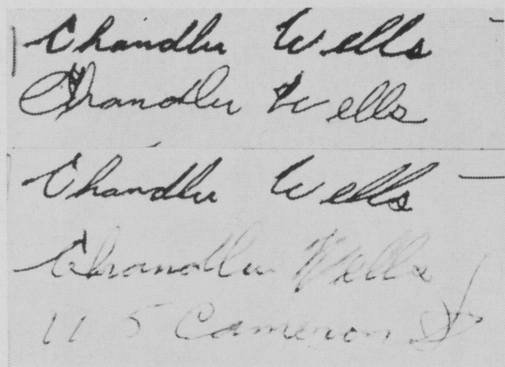 Chandler Wells
Chandler Wells
Chandler Wells
Chandler Wells
115 Cameron St